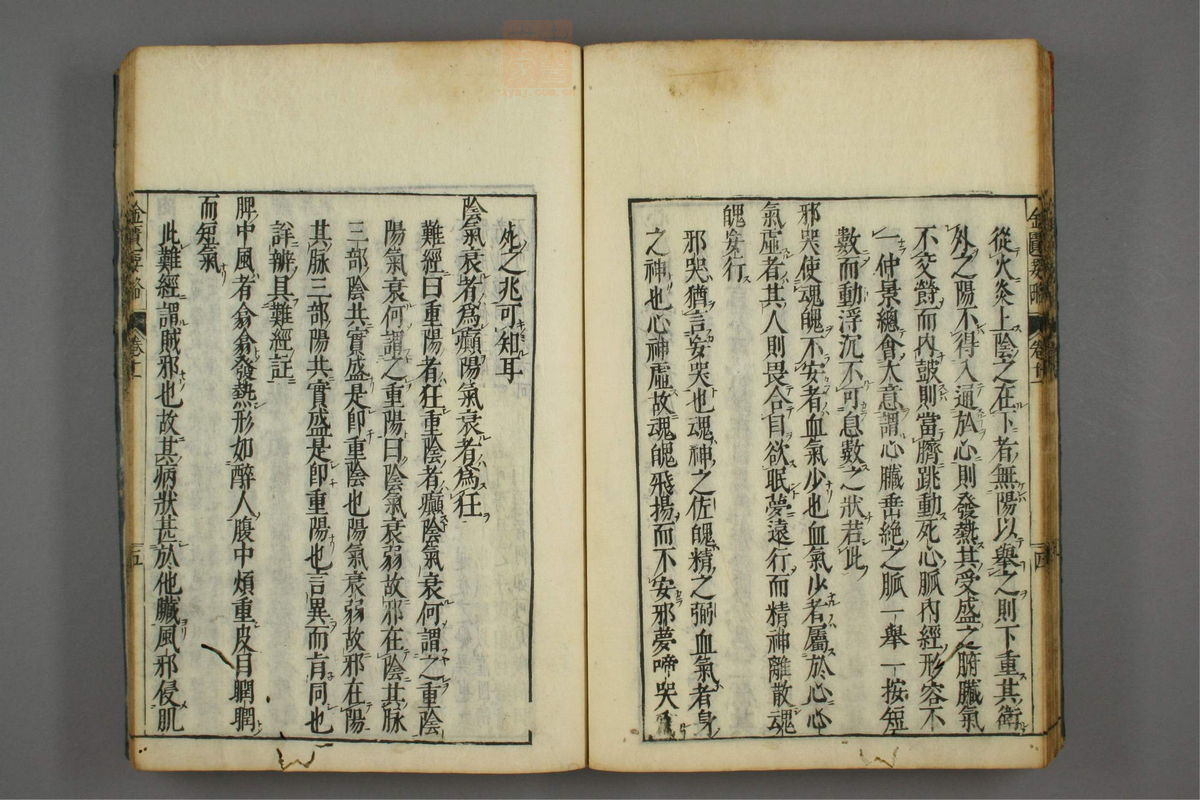 從火炎上陰之在下者無陽以舉之則下重其衛
外之陽不得入通於心則發熱其受盛之腑臟氣
不交欝而內鼓則當臍跳動死心脈內經形容不
一仲景總會大意謂心臟垂絶之脈一舉一按短
數而動浮沉不可息數之狀若此
邪哭使魂魄不安者血氣少也血氣少者屬於心心
氣虛者其人則畏合目欲眠夢遠行而精神離散魂
魄妄行
邪哭猶言妄哭也魂神之佐魄精之弼血氣者身
之神也心神虛故魂魄飛揚而不安邪夢啼哭
死之兆可知耳
陰氣衰者為癲陽氣衰者為狂
難經曰重陽者狂重陰者癲陰氣衰何謂之重陰
陽氣衰何謂之重陽曰陰氣衰弱故邪在陰其脉
三部陰共實盛是即重陰也陽氣衰弱故邪在陽
其脉三部陽共實盛是即重陽也言異而肯同也
詳辨具難經註
脾中風者翕翕發熱形如醉人腹中煩重皮目瞤瞤
而短氣
此難經謂賊邪也故其病狀甚於他臟風邪侵肌
五